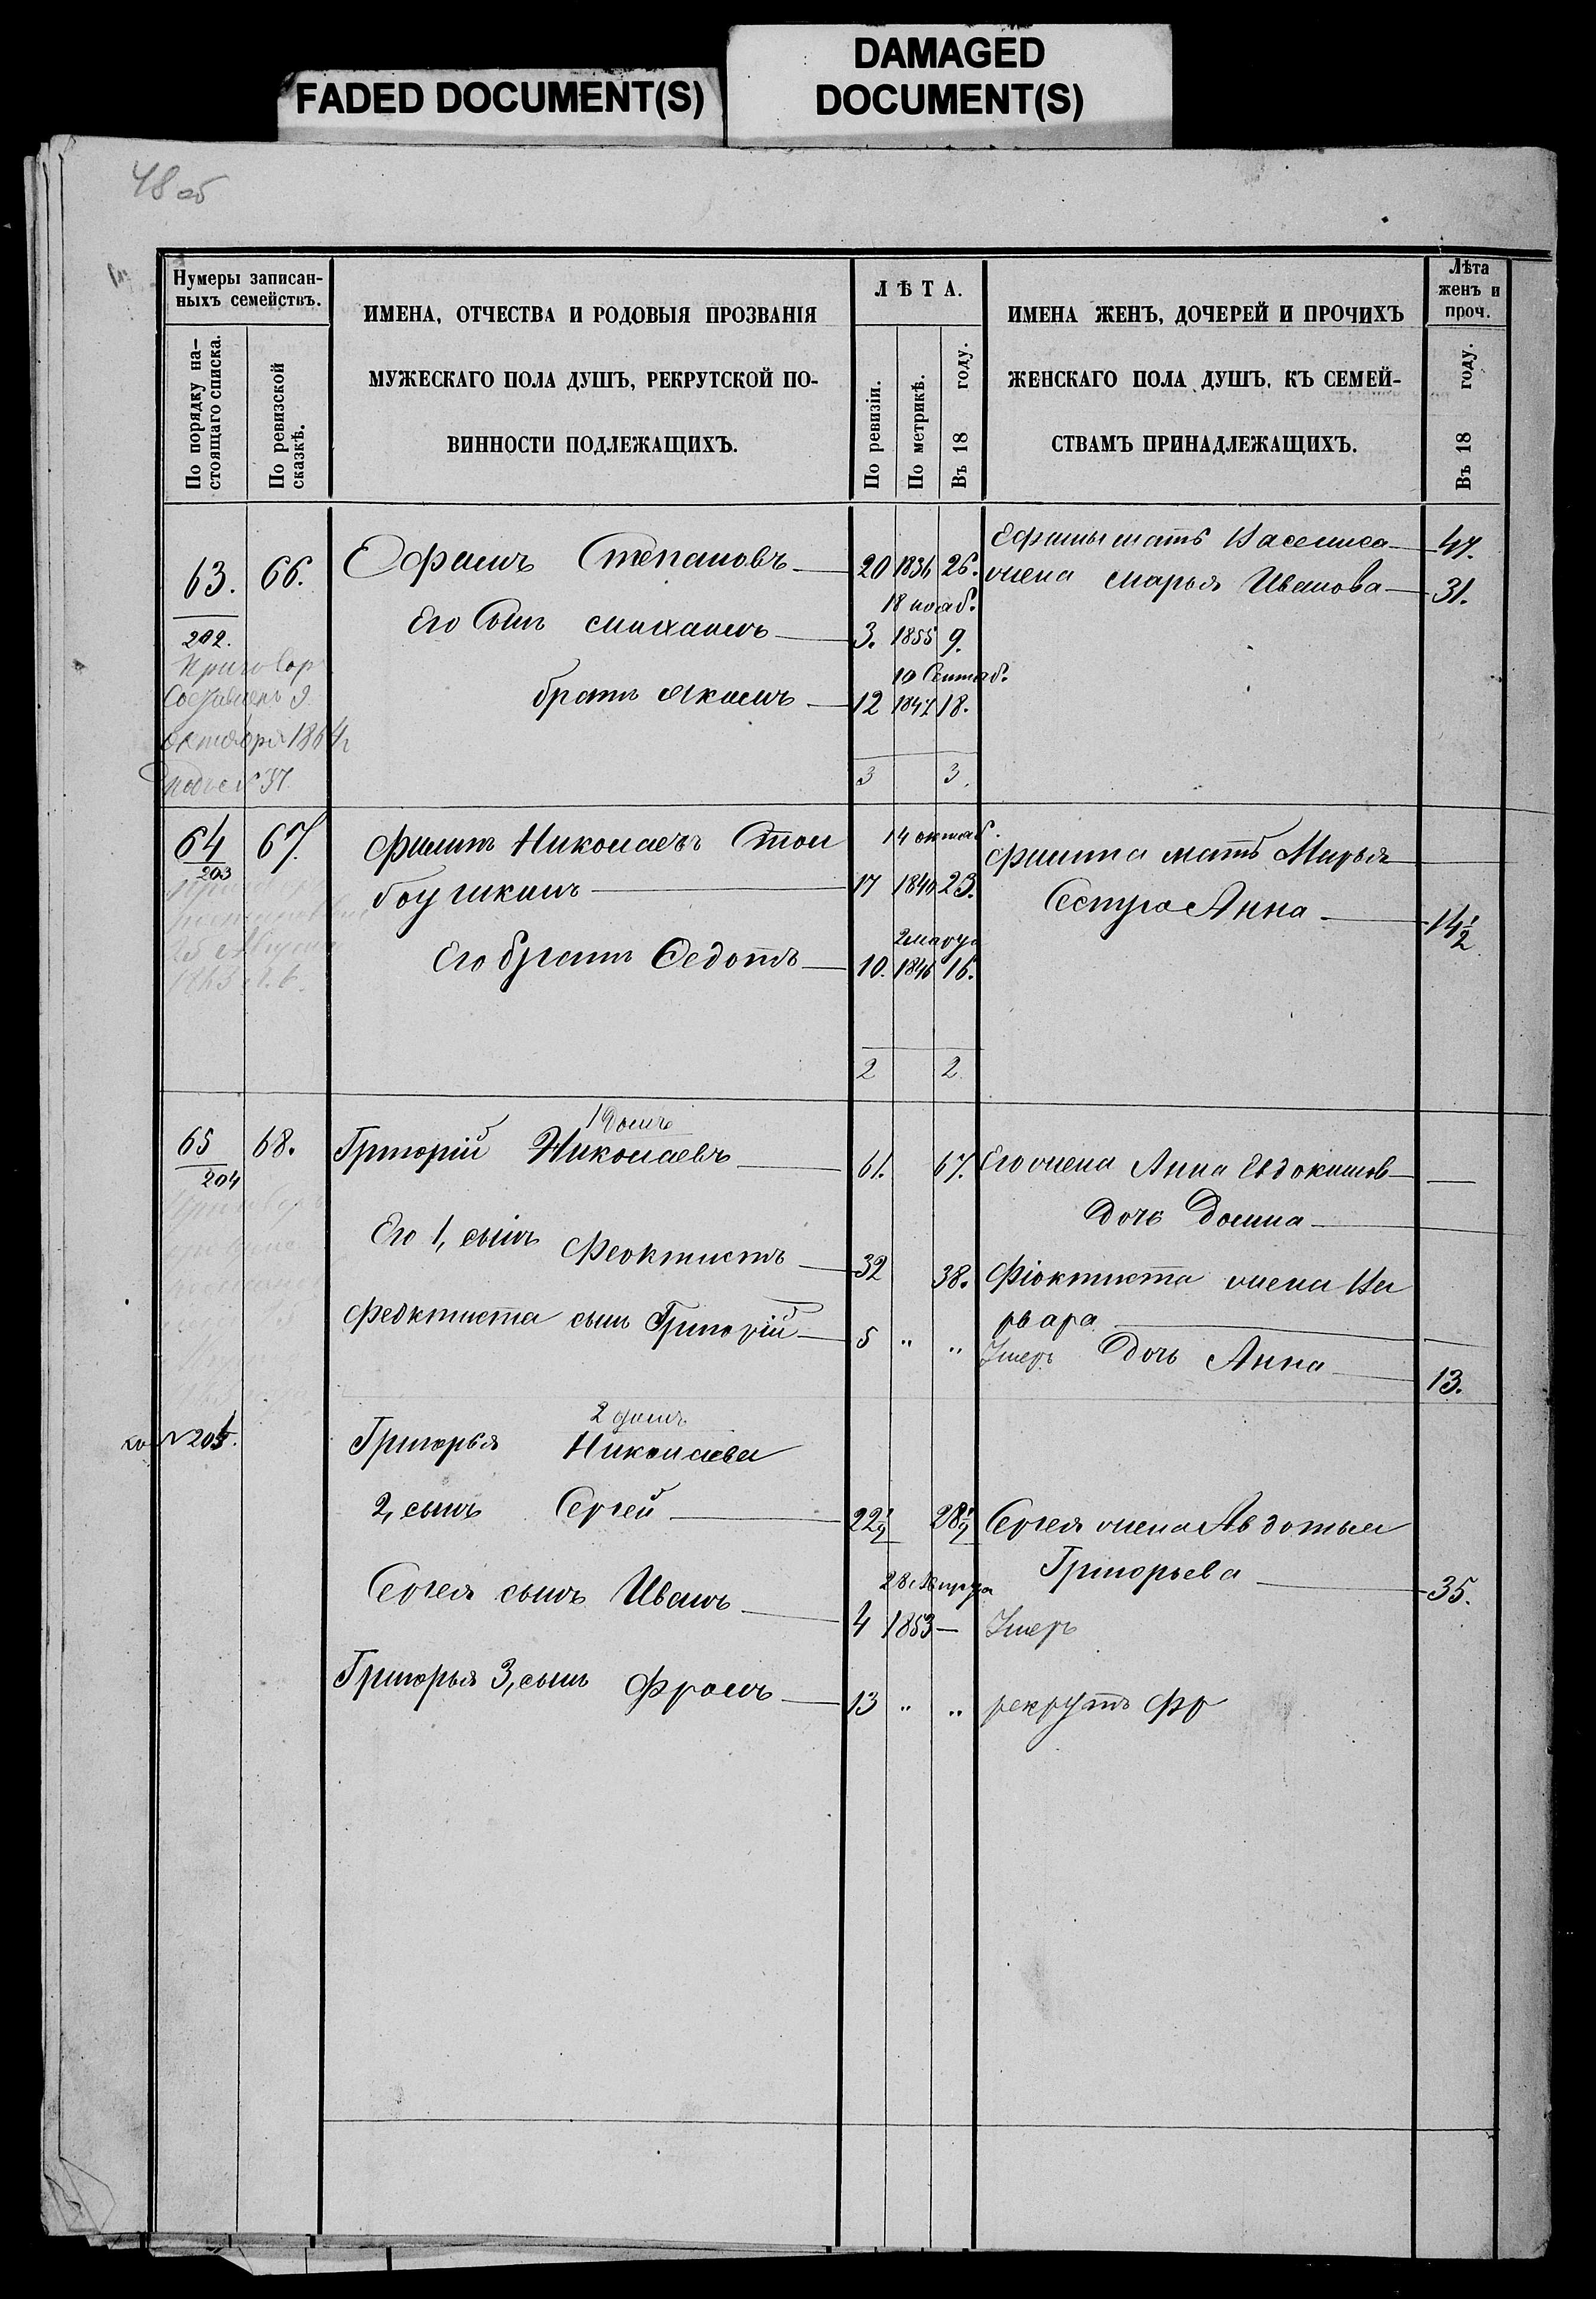 FADED DOCUMENT(S)
DAMAGED
DOCUMENT(S)
48 об
Нумеры записан-
ныхъ семействъ.
По порядку на-
стоящаго списка.
По ревизской
сказкѣ.
ИМЕНА, ОТЧЕСТВА И РОДОВЫЯ ПРОЗВАНІЯ
МУЖЕСКАГО ПОЛА ДУШЪ, РЕКРУТСКОЙ ПО-
ВИННОСТИ ПОДЛЕЖАЩИХЪ.
ЛѢТА.
По ревизіи.
По метрикѣ.
Въ 18 году.
ИМЕНА ЖЕНЪ, ДОЧЕРЕЙ И ПРОЧИХЪ
ЖЕНСКАГО ПОЛА ДУШЪ, КЪ СЕМЕЙ-
СТВАМЪ ПРИНАДЛЕЖАЩИХЪ.
Лѣта
женъ и
проч.
Въ 18 году.
63. 66. Ефимъ Степановъ 20 1836 26.
Ефимы мать Василиса 47.
жена Марья Иванова 31.
202.
18 нояб.
Его Сынъ Михаилъ 3. 1855 9.
Приговор
Составленъ 9
октября 1864 г
10 Сентяб.
братъ Якимъ 12 1847 18.
3 3.
64 67. Филипъ Николаевъ Стол
14 октяб.
боушкинъ 17 1840 23.
203
Филипа мать Марья
Сестра Анна 14 1/2
25 Августа
2 марта
Его братъ Федотъ 10. 1846 16.
2 2
1 Домъ
65 68. Григорій Николаевъ 61. 67. Его жена Анна Евдокимов
204
Дочь Домна
Его 1, сынъ Феоктистъ 32 38. Фіоктиста жена Ва
рвара
Феоктиста сынъ Григорій 5 " " Умеръ
Дочь Анна 13.
2 домъ
№ 205.
Григорья Николаева
2, сынъ Сергей 22 1/2 28 1/2 Сергея жена Авдотья
Григорьева 35.
Сергея сынъ Иванъ 4 1853 — Умеръ
Григорья 3, сынъ Фролъ 13 " " рекрутъ Фр